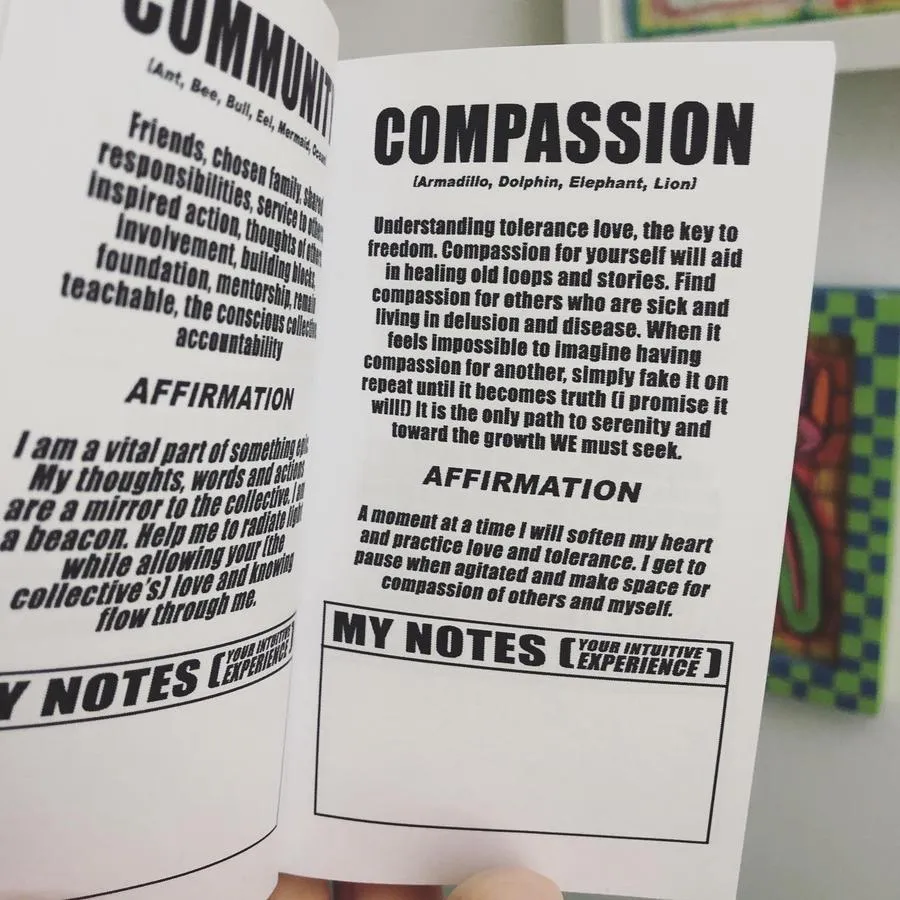 COMMUNIT
(Ant, Bee, Bull, Eel, Mermaid, Ocean)
Friends, chosen family, shared
responsibilities, service to others
inspired action, thoughts of others
involvement, building blocks,
foundation, mentorship, remain
teachable, the conscious collective
accountability
AFFIRMATION
I am a vital part of something epic.
My thoughts, words and actions
are a mirror to the collective. I am
a beacon. Help me to radiate light
while allowing your (the
collective's) love and knowing
flow through me.
Y NOTES (YOUR INTUITIVE
EXPERIENCE)
COMPASSION
(Armadillo, Dolphin, Elephant, Lion)
Understanding tolerance love, the key to
freedom. Compassion for yourself will aid
in healing old loops and stories. Find
compassion for others who are sick and
living in delusion and disease. When it
feels impossible to imagine having
compassion for another, simply fake it on
repeat until it becomes truth (i promise it
will!) It is the only path to serenity and
toward the growth WE must seek.
AFFIRMATION
A moment at a time I will soften my heart
and practice love and tolerance. I get to
pause when agitated and make space for
compassion of others and myself.
MY NOTES (YOUR INTUITIVE
EXPERIENCE)